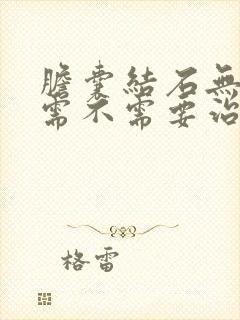 膽囊結石無
需不需要治
格雷